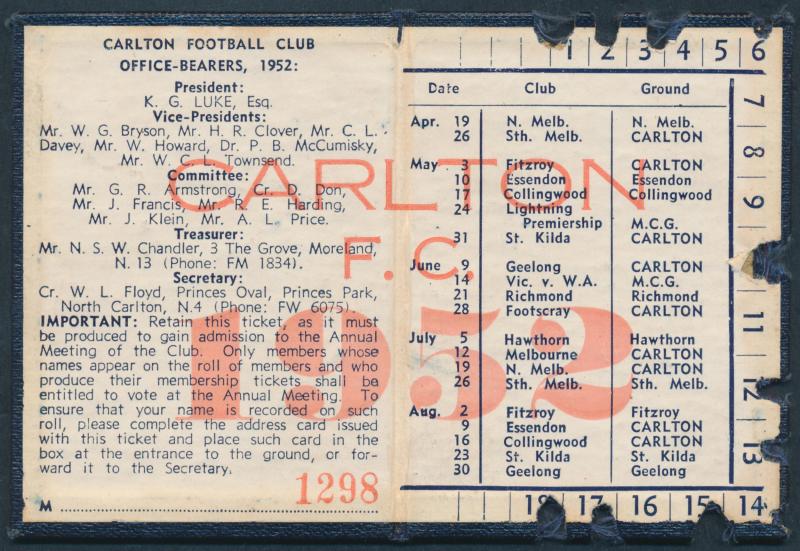 CARLTON FOOTBALL CLUB
OFFICE-BEARERS, 1952:
President:
K. G. LUKE, Esq.
Vice-Presidents:
Mr. W. G. Bryson, Mr. H. R. Clover, Mr. C. L.
Davey, Mr. W. Howard, Dr. P. B. McCumisky,
Mr. W. C. L. Townsend.
Committee:
Mr. G. R. Armstrong, Cr. D. Don,
Mr. J. Francis, Mr. R. E. Harding,
Mr. J. Klein, Mr. A. L. Price.
Treasurer:
Mr. N. S. W. Chandler, 3 The Grove, Moreland,
N.13 (Phone: FM 1834).
Secretary:
Cr. W. L. Floyd, Princes Oval, Princes Park,
North Carlton, N.4 (Phone: FW 6075).
IMPORTANT: Retain this ticket, as it must
be produced to gain admission to the Annual
Meeting of the Club. Only members whose
names appear on the roll of members and who
produce their membership tickets shall be
entitled to vote at the Annual Meeting. To
ensure that your name is recorded on such
roll, please complete the address card issued
with this ticket and place such card in the
box at the entrance to the ground, or for-
ward it to the Secretary.
1298
M
CARLTON
F.C.
1952
1 2 3 4 5 6
7
8
9
11
12
13
18 17 16 15 14
Date Club Ground
Apr. 19 N. Melb. N. Melb.
26 Sth. Melb. CARLTON
May 3 Fitzroy CARLTON
10 Essendon Essendon
17 Collingwood Collingwood
24 Lightning
Premiership M.C.G.
31 St. Kilda CARLTON
June 9 Geelong CARLTON
14 Vic. v. W.A. M.C.G.
21 Richmond Richmond
28 Footscray CARLTON
July 5 Hawthorn Hawthorn
12 Melbourne CARLTON
19 N. Melb. CARLTON
26 Sth. Melb. Sth. Melb.
Aug. 2 Fitzroy Fitzroy
9 Essendon CARLTON
16 Collingwood CARLTON
23 St. Kilda St. Kilda
30 Geelong Geelong